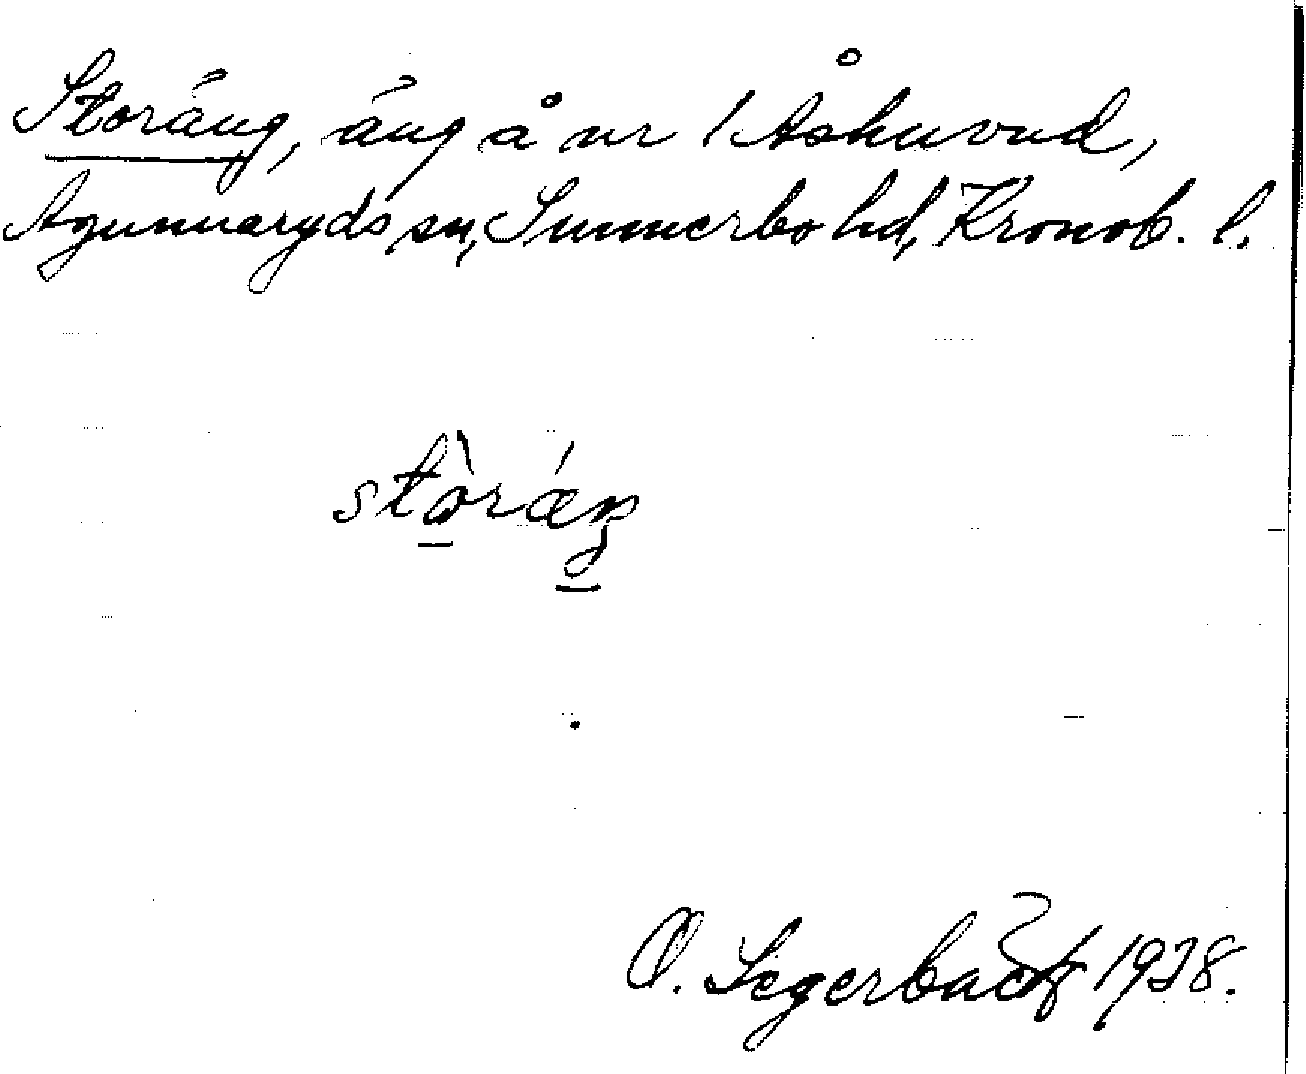 Storäng, äng å nr 1 Åshuvud,
Agunnaryds sn, Sunnerbo hd, Kronob. l.
stòráŋ
O. Segerbäck 1928.